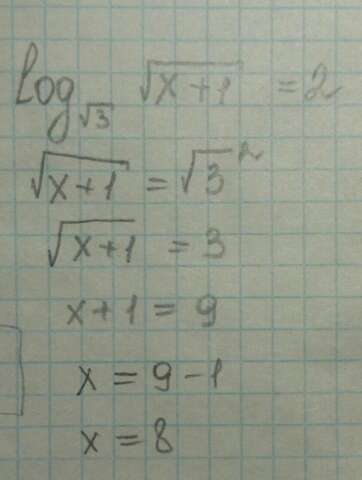 log_√3 √(x+1) = 2
√(x+1) = √3²
√(x+1) = 3
x+1 = 9
x = 9-1
x = 8